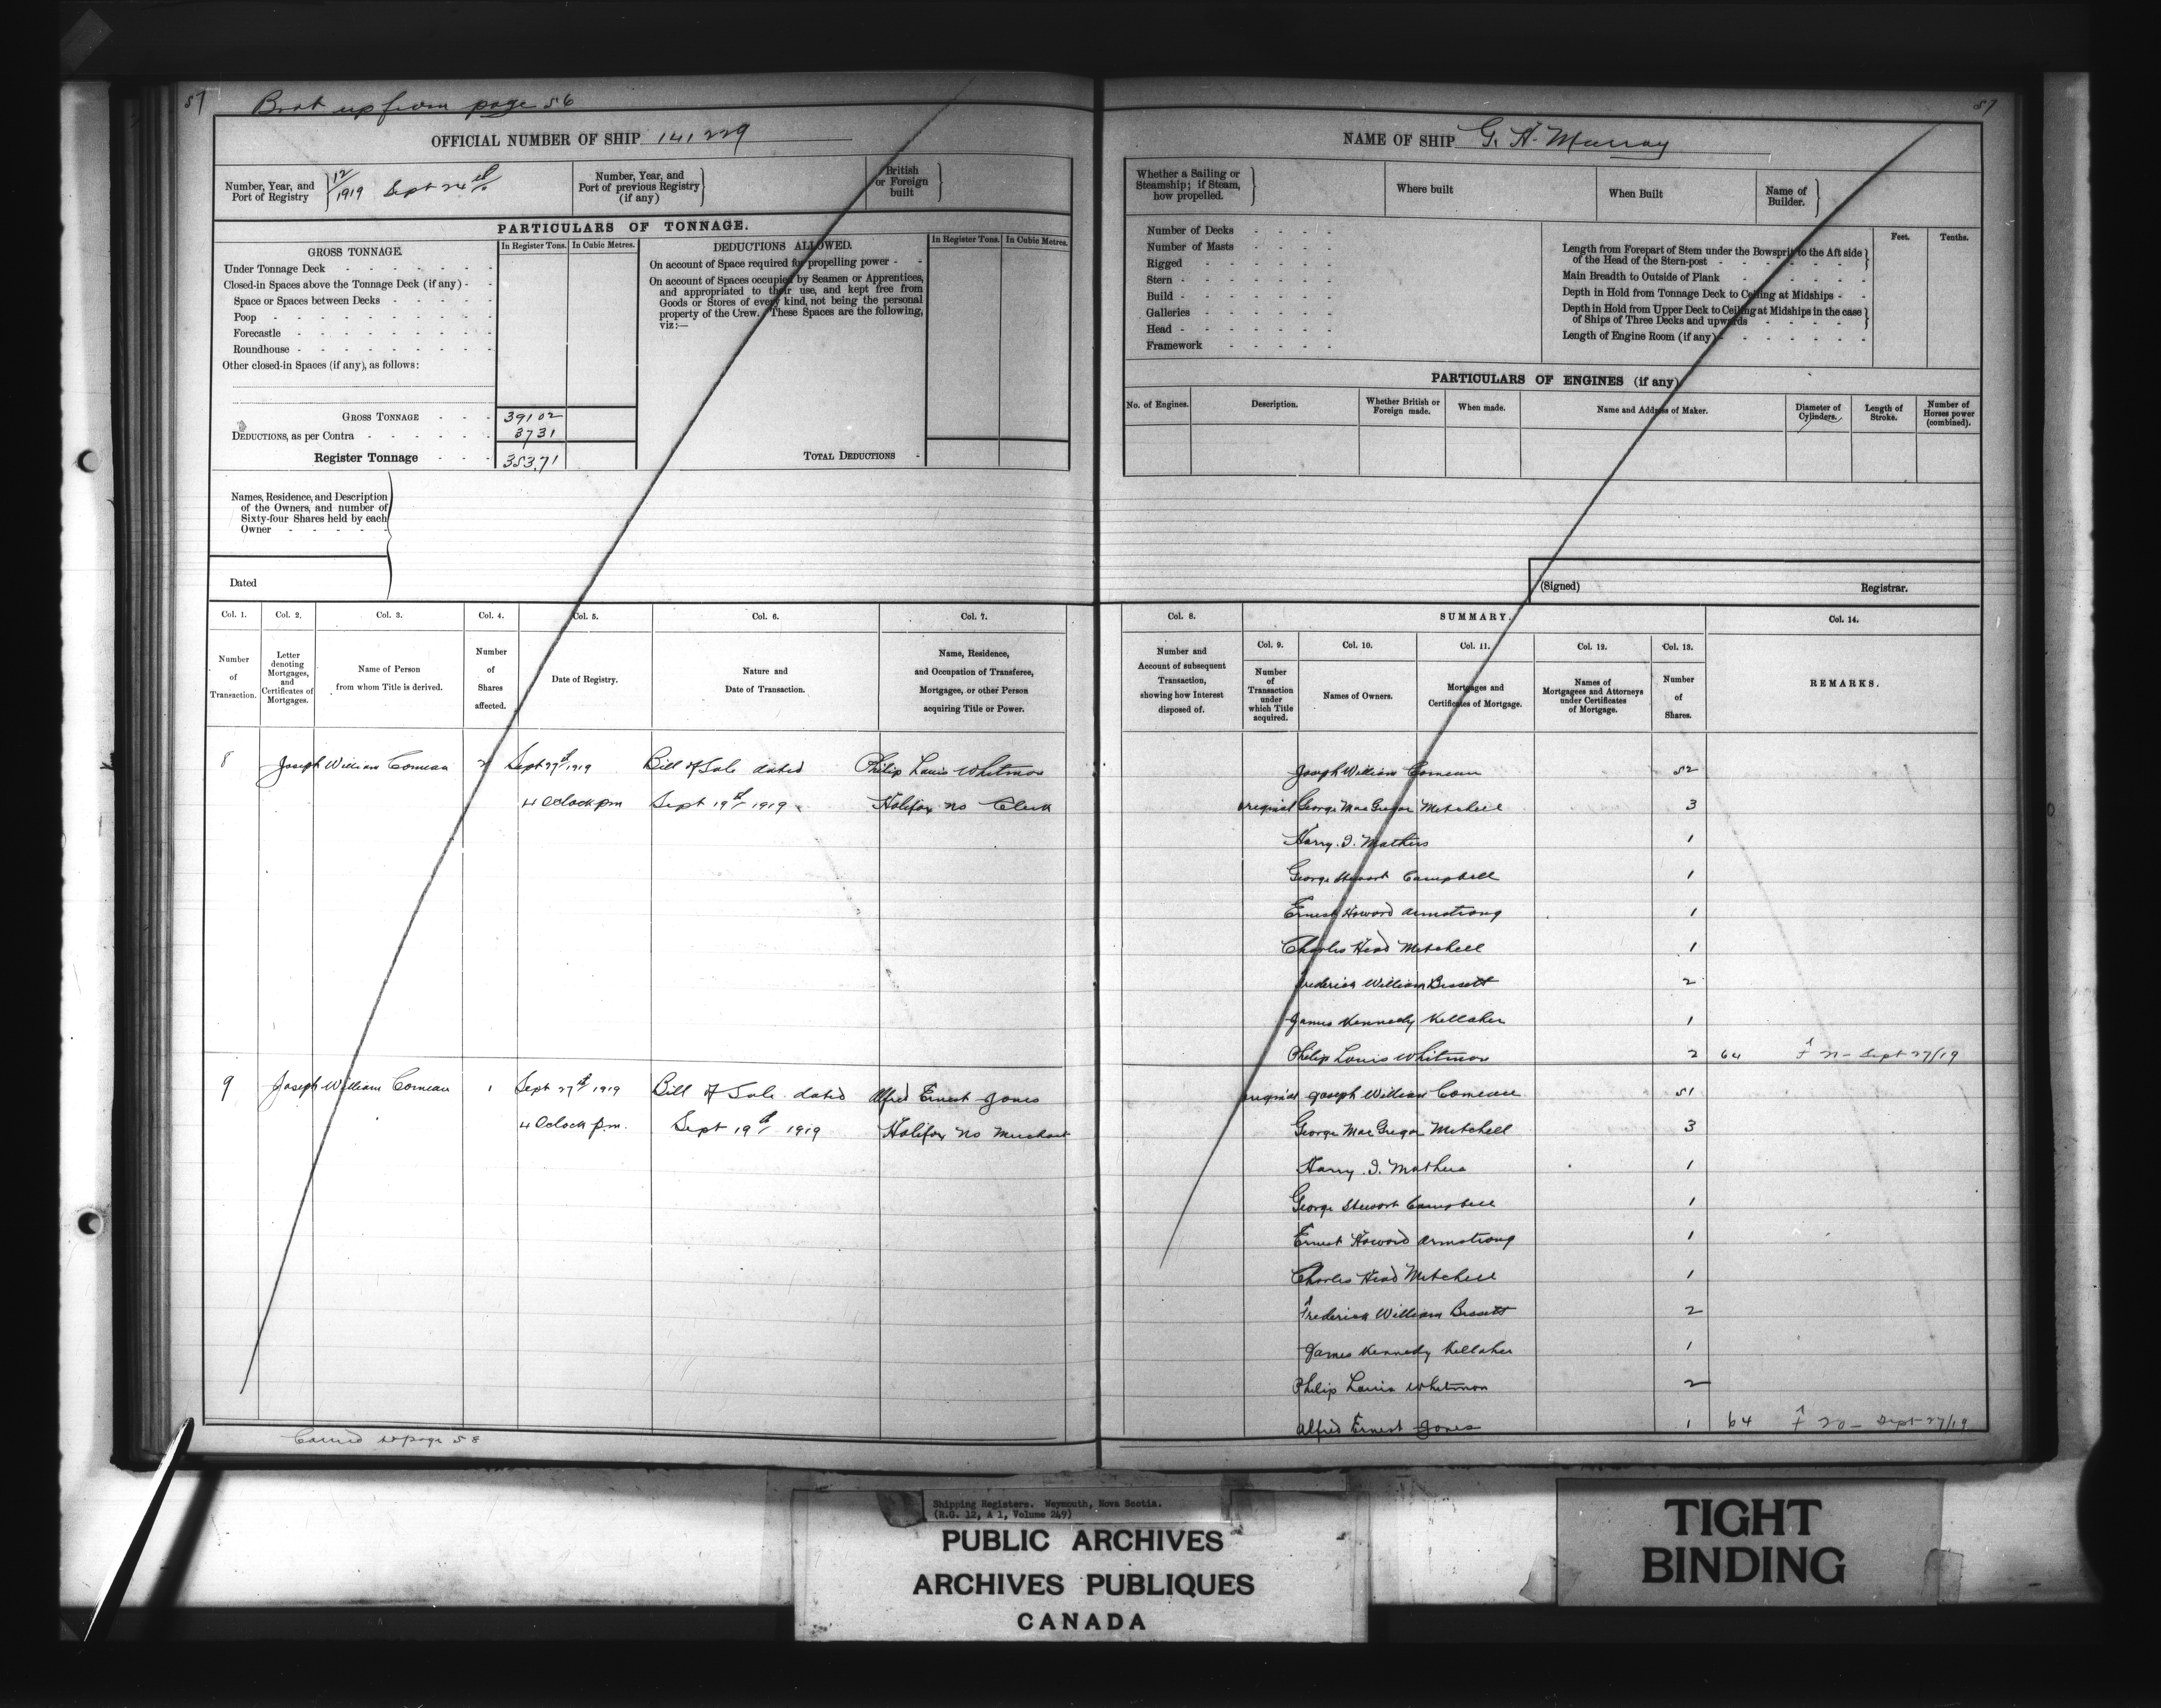 57
Brot up from page 56
OFFICIAL NUMBER OF SHIP 141,229
Number, Year, and
Port of Registry
12/1919 Sept 24th
Number, Year, and
Port of previous Registry
(if any)
British
or Foreign
built
PARTICULARS OF TONNAGE.
GROSS TONNAGE.
In Register Tons.
In Cubic Metres.
Under Tonnage Deck
Closed-in Spaces above the Tonnage Deck (if any)
Space or Spaces between Decks
Poop
Forecastle
Roundhouse
Other closed-in Spaces (if any), as follows:
GROSS TONNAGE 391 02
DEDUCTIONS, as per Contra 37 31
Register Tonnage 353.71
DEDUCTIONS ALLOWED.
In Register Tons.
In Cubic Metres.
On account of Space required for propelling power
On account of Spaces occupied by Seamen or Apprentices,
and appropriated to their use, and kept free from
Goods or Stores of every kind, not being the personal
property of the Crew. These Spaces are the following,
viz:—
TOTAL DEDUCTIONS
Names, Residence, and Description
of the Owners, and number of
Sixty-four Shares held by each
Owner
Dated
Col. 1. Col. 2. Col. 3. Col. 4. Col. 5. Col. 6. Col. 7.
Number
of
Transaction.
Letter
denoting
Mortgages,
and
Certificates of
Mortgages.
Name of Person
from whom Title is derived.
Number
of
Shares
affected.
Date of Registry.
Nature and
Date of Transaction.
Name, Residence,
and Occupation of Transferee,
Mortgagee, or other Person
acquiring Title or Power.
8 Joseph William Comeau 2 Sept 27th 1919 Bill of Sale dated Philip Louis Whitman
4 Oclock pm Sept 19th 1919 Halifax NS Clerk
9 Joseph William Comeau 1 Sept 27th 1919 Bill of Sale dated Alfred Ernest Jones
4 Oclock p.m. Sept 19th 1919 Halifax NS Merchant
Carried to page 58
57
NAME OF SHIP G. H. Murray
Whether a Sailing or
Steamship; if Steam,
how propelled.
Where built
When Built
Name of
Builder.
Number of Decks
Number of Masts
Rigged
Stern
Build
Galleries
Head
Framework
Feet. Tenths.
Length from Forepart of Stem under the Bowsprit to the Aft side
of the Head of the Stern-post
Main Breadth to Outside of Plank
Depth in Hold from Tonnage Deck to Ceiling at Midships
Depth in Hold from Upper Deck to Ceiling at Midships in the case
of Ships of Three Decks and upwards
Length of Engine Room (if any)
PARTICULARS OF ENGINES (if any)
No. of Engines.
Description.
Whether British or
Foreign made.
When made.
Name and Address of Maker.
Diameter of
Cylinders.
Length of
Stroke.
Number of
Horses power
(combined).
(Signed) Registrar.
Col. 8. SUMMARY. Col. 14.
Col. 9. Col. 10. Col. 11. Col. 12. Col. 13.
Number and
Account of subsequent
Transaction,
showing how Interest
disposed of.
Number
of
Transaction
under
which Title
acquired.
Names of Owners.
Mortgages and
Certificates of Mortgage.
Names of
Mortgagees and Attorneys
under Certificates
of Mortgage.
Number
of
Shares.
REMARKS.
Joseph William Comeau 52
original George MacGregor Mitchell 3
Harry I. Mathers 1
George Stewart Campbell 1
Ernest Howard Armstrong 1
Charles Head Mitchell 1
Frederick William Bissett 2
James Kennedy Kellaher 1
Philip Louis Whitman 2 64 Sept 27/19
original Joseph William Comeau 51
George MacGregor Mitchell 3
Harry I. Mathers 1
George Stewart Campbell 1
Ernest Howard Armstrong 1
Charles Head Mitchell 1
Frederick William Bissett 2
James Kennedy Kellaher 1
Philip Louis Whitman 2
Alfred Ernest Jones 1 64 Sept 27/19
Shipping Registers. Weymouth, Nova Scotia.
(R.G. 12, A 1, Volume 249)
PUBLIC ARCHIVES
ARCHIVES PUBLIQUES
CANADA
TIGHT
BINDING